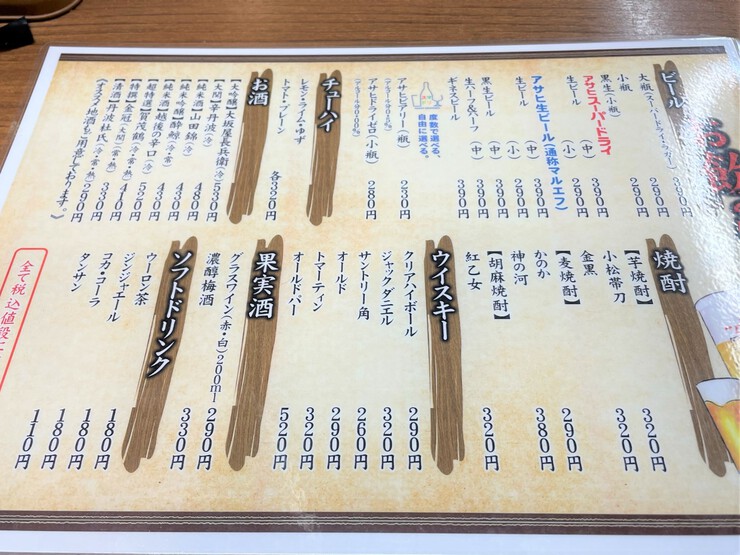 ビール
大瓶(スーパードライ・ラガー)
小瓶 290円
黒生(小瓶) 290円
アサヒスーパードライ
生ビール (中) 390円
生ビール (小) 290円
アサヒ生ビール(通称マルエフ)
生ビール (中) 390円
生ビール (小) 290円
黒生ビール (中) 390円
生ハーフ&ハーフ (中) 390円
ギネスビール 390円
度数で選べる。
自由に選べる。
アサヒビアリー(瓶) 230円
アサヒドライゼロ(小瓶) 280円
チューハイ
レモン・ライム・ゆず
トマト・プレーン
各320円
お酒
【大吟醸】大坂屋長兵衛(冷) 530円
【大関】辛丹波(冷) 480円
【純米酒】山田錦(冷) 430円
【純米吟醸】酔鯨(冷) 490円
【純米酒】越後の辛口(冷) 430円
【超特選】賀茂鶴(冷・常・熱) 520円
【特撰】金冠(大関)(常・熱) 410円
【清酒】丹波杜氏(冷・常・熱) 330円 290円
(オススメ地酒もご用意しております。)
焼酎
【芋焼酎】
小松帯刀 320円
金黒 320円
【麦焼酎】
かのか 290円
神の河 380円
【胡麻焼酎】
紅乙女 320円
ウイスキー
クリアハイボール 290円
ジャックダニエル 320円
サントリー角 260円
オールド 290円
トマーティン 320円
オールドパー 520円
果実酒
グラスワイン(赤・白)200ml 290円
濃醇梅酒 330円
ソフトドリンク
ウーロン茶 180円
ジンジャエール 180円
コカ・コーラ 180円
タンサン 110円
全て税込値段